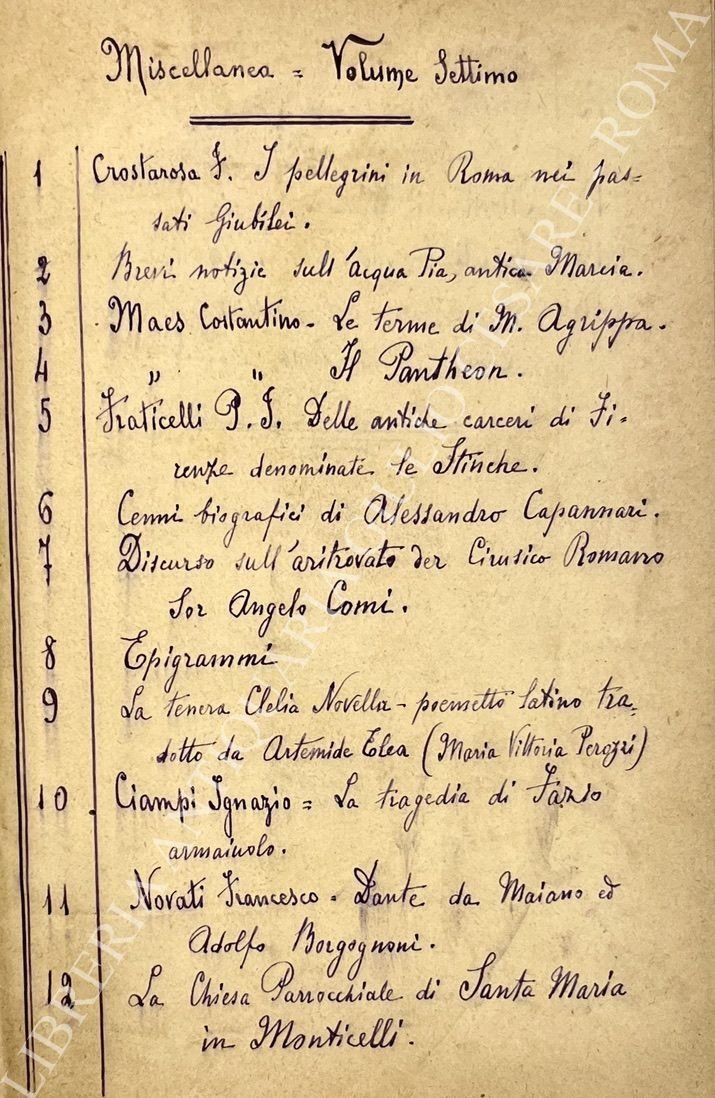 Miscellanea = Volume Settimo
1 Crostarosa F. I pellegrini in Roma nei pas=
sati Giubilei.
2 Brevi notizie sull'acqua Pia, antica Marcia.
3 Maes Costantino - Le terme di M. Agrippa.
4 " " Il Pantheon.
5 Fraticelli P. J. Delle antiche carceri di Fi-
renze denominate le Stinche.
6 Cenni biografici di Alessandro Capannari.
7 Discurso sull'aritrovato der Cirusico Romano
Sor Angelo Comi.
8 Epigrammi
9 La tenera Clelia Novella - poemetto latino tra-
dotto da Artemide Elea (Maria Vittoria Perozzi)
10 Ciampi Ignazio = La tragedia di Fazio
armaiuolo.
11 Novati Francesco - Dante da Maiano ed
Adolfo Borgognoni.
12 La Chiesa Parrocchiale di Santa Maria
in Monticelli.
LIBRERIA ANTIQUARIA GIULIO CESARE ROMA